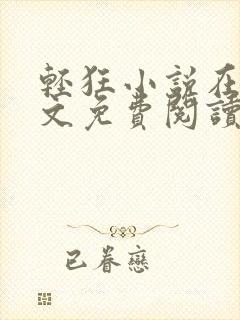 輕狂小說在
文免費閱讀
已眷戀